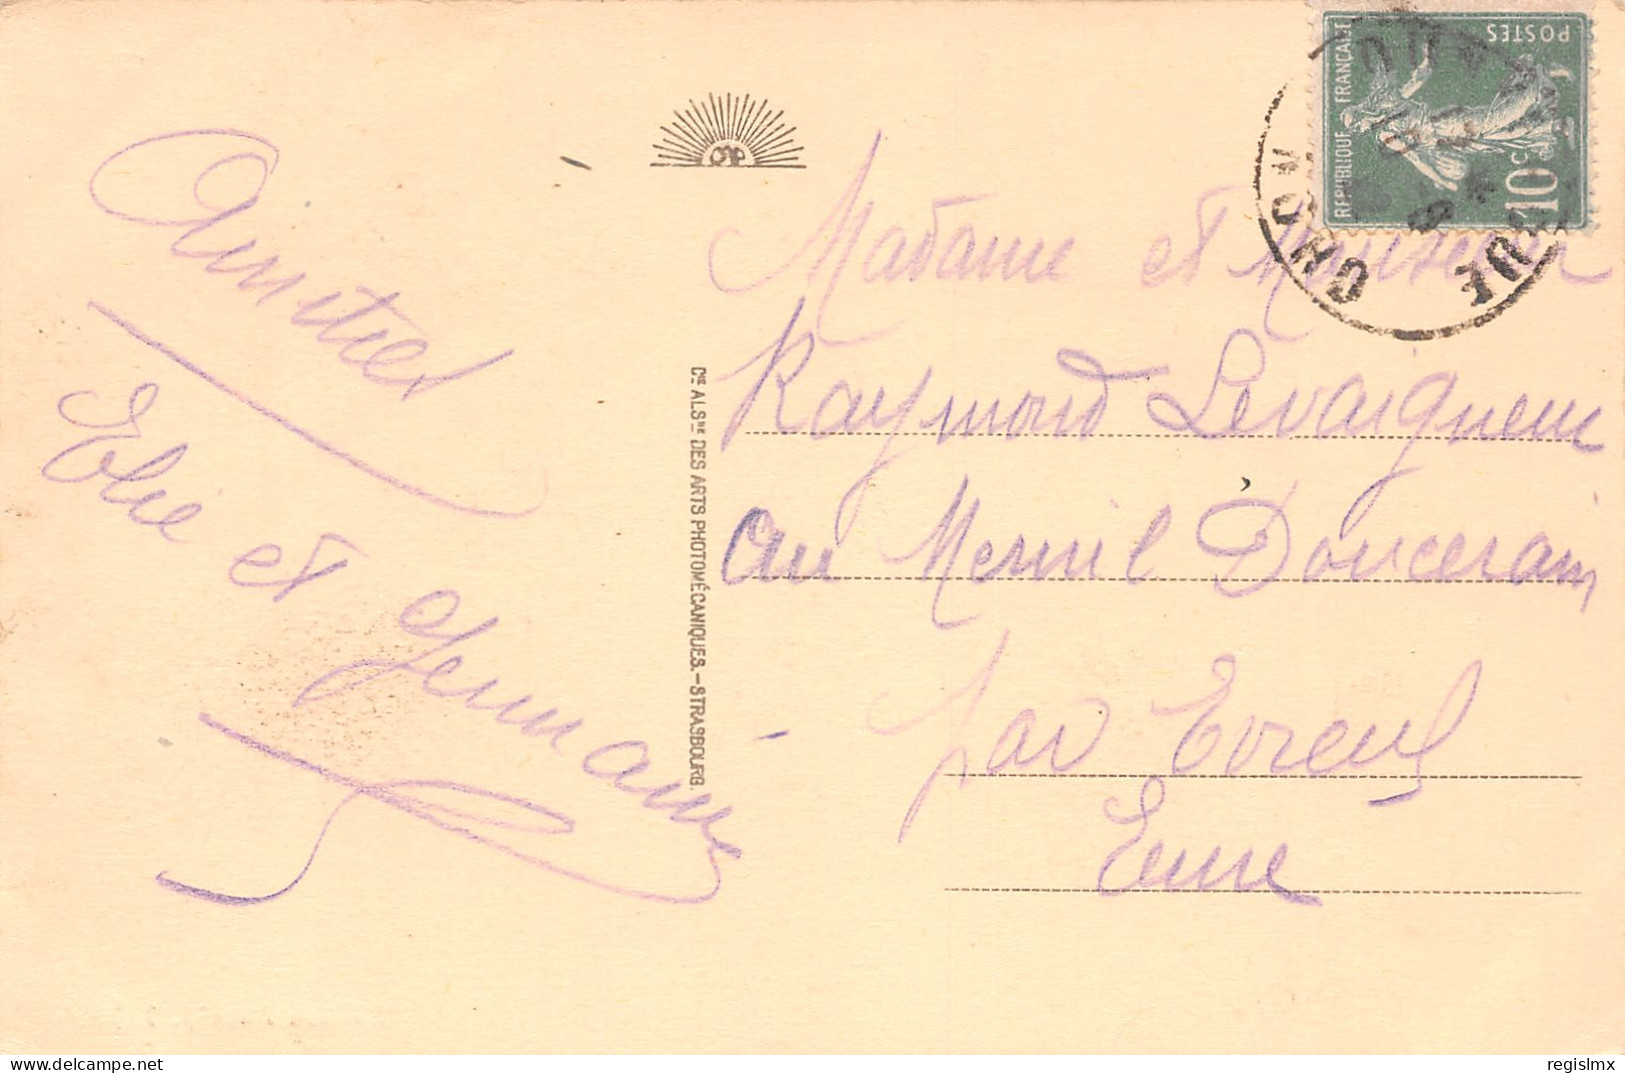 Amitiés
Elie et Germaine
Cie ALSne DES ARTS PHOTOMÉCANIQUES.-STRASBOURG.
POSTES
RÉPUBLIQUE FRANÇAISE
10c
Madame et Monsieur
Raymond Levaigneur
au Mesnil Doucerain
par Evreux
Eure
delcampe.net
regislmx